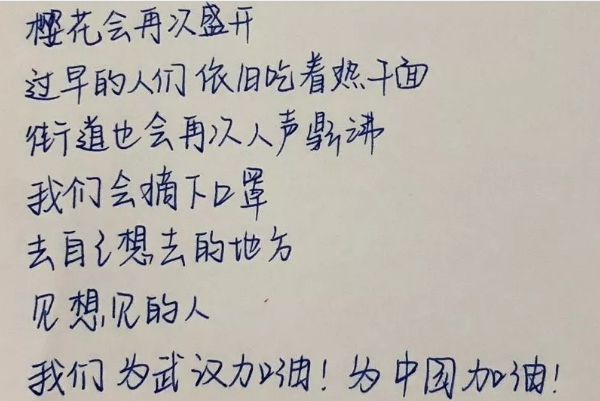 樱花会再次盛开
过早的人们依旧吃着热干面
街道也会再次人声鼎沸
我们会摘下口罩
去自己想去的地方
见想见的人
我们为武汉加油！为中国加油！